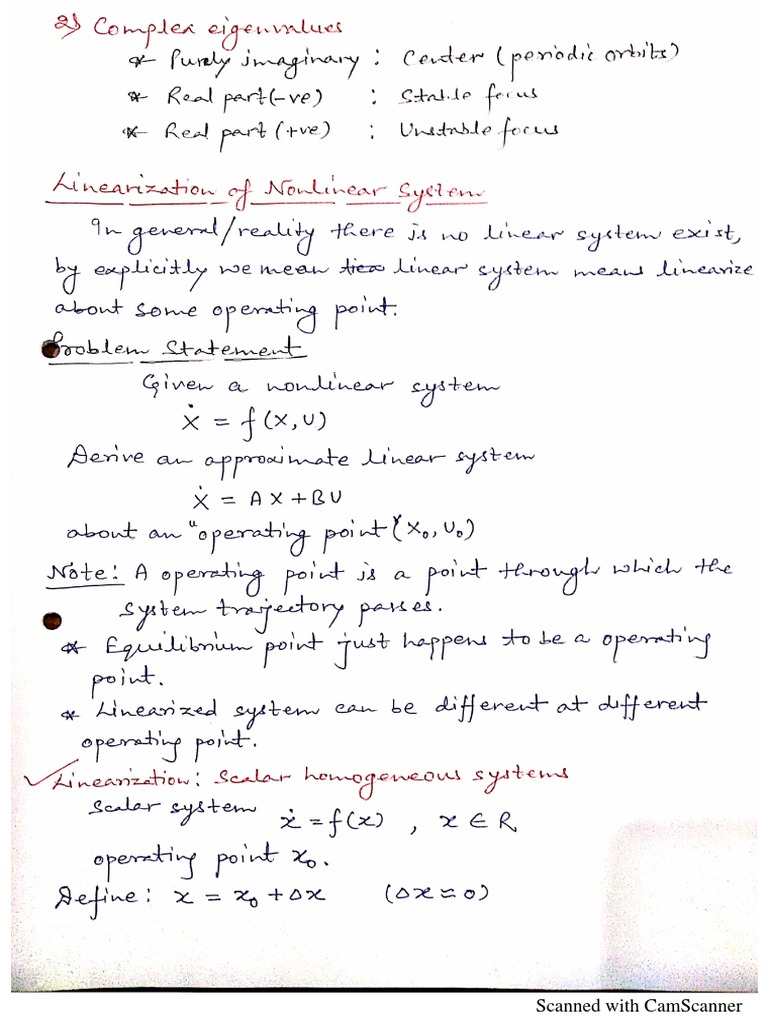 2) Complex eigenvalues
* Purely imaginary : Center (periodic orbits)
* Real part (-ve) : Stable focus
* Real part (+ve) : Unstable focus
Linearization of Nonlinear System
In general/reality there is no linear system exist,
by explicitly we mean linear system means linearize
about some operating point.
Problem Statement
Given a nonlinear system
Ẋ = f(X,U)
Derive an approximate linear system
Ẋ = AX+BU
about an "operating point" (X₀, U₀)
Note: A operating point is a point through which the
system trajectory passes.
* Equilibrium point just happens to be a operating
point.
* Linearized system can be different at different
operating point.
Linearization: Scalar homogeneous systems
Scalar system ẋ = f(x) , x ∈ R
operating point x₀.
Define: x = x₀ + Δx (Δx ≈ 0)
Scanned with CamScanner